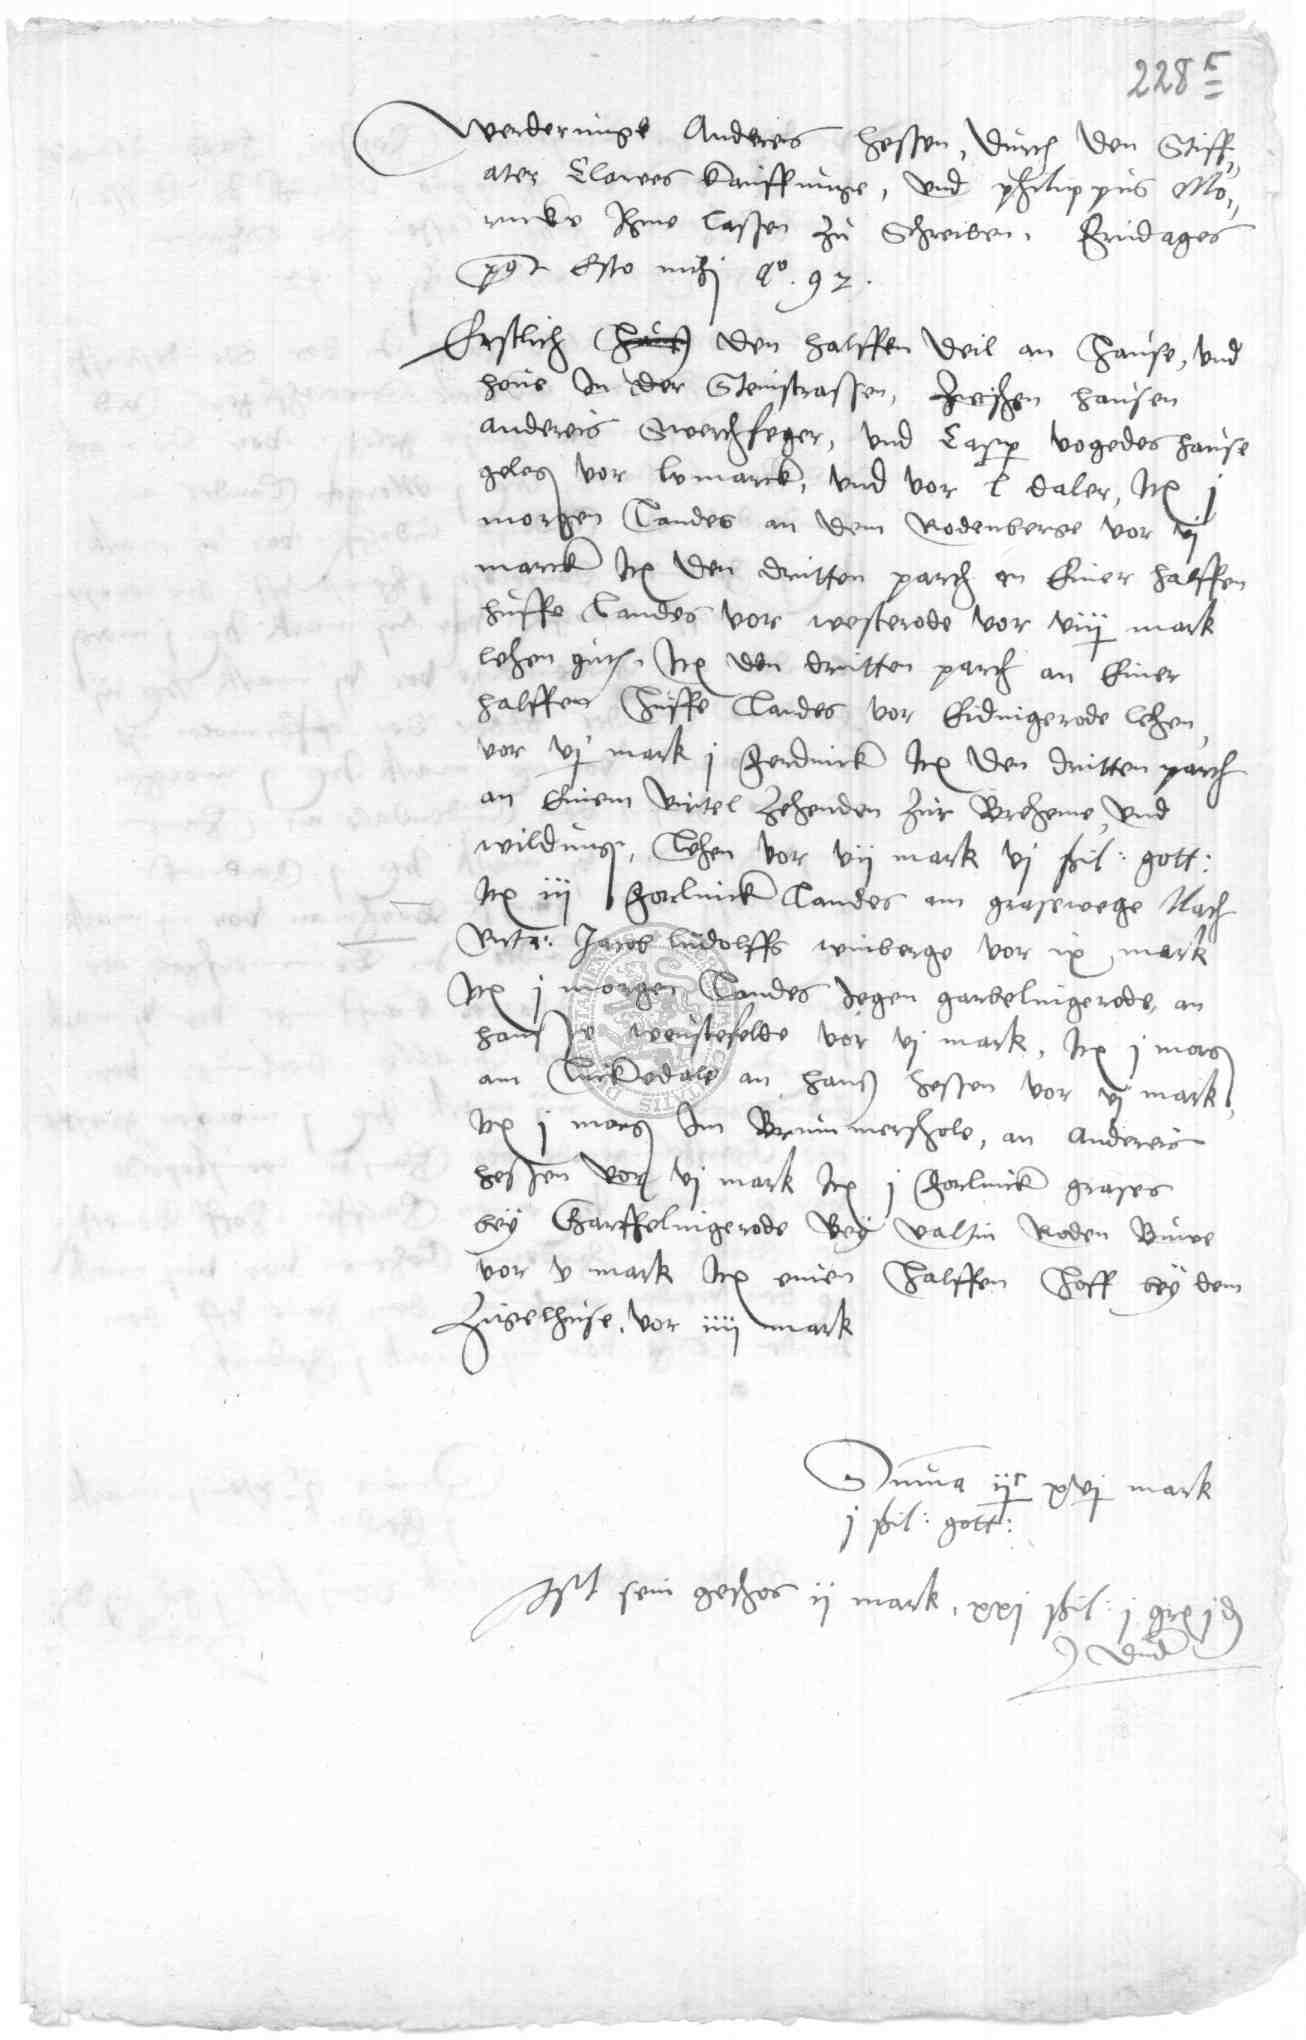 228 5
Werderunge Andreis Hessen, durch den Stiff,,
ater Clawes Kauffunge, vnd philippus Mo,,
rincks Ihme lassen zu Schreiben. Fridages
post Esto mihj Ao. 92.
Erstlich den halffen deil an Hause, vnd
houe In der Steinstrassen, zwischen hausen
andereis Swerchfeger, vnd Casper vogedes hause
gelegen vor lv marck, vnd vor l daler, Item j
morgen Landes an dem Rodenberge vor vj
marck Item den dritten parch an Einer halffen
huffe Landes vor westerode vor viij mark
lehen guth. Item den dritten parch an Einer
halffen Huffe Landes vor Eidnigerode lehen,
vor vj mark j Ferdinck Item den dritten parch
an Einem virtel Zehenden zur Breheme, vnd
wildung, Lehen vor vij mark vj ßil: gott:
Item iij Forlinck Landes am grasewege Nach
Jacob ludolffs winberge vor ix mark
Item j morgen Landes Jegen garbelnigerode, an
hansse weustefelde vor vj mark, Item j morgen
am Luckedale an hans hessen vor vj mark,
Item j morgen Im Brummershole, an Andereis
hessen vor vj mark Item j Forlinck grases
bey Garffelnigerode Bey valtin Roden Buwe
vor v mark Item einen Halffen Hoff bey dem
Zigelhuse, vor iiij mark
Summa ijc xvj mark
j ßil: gott:
Ist sein geschos ij mark, xxj ßil: j gr j d